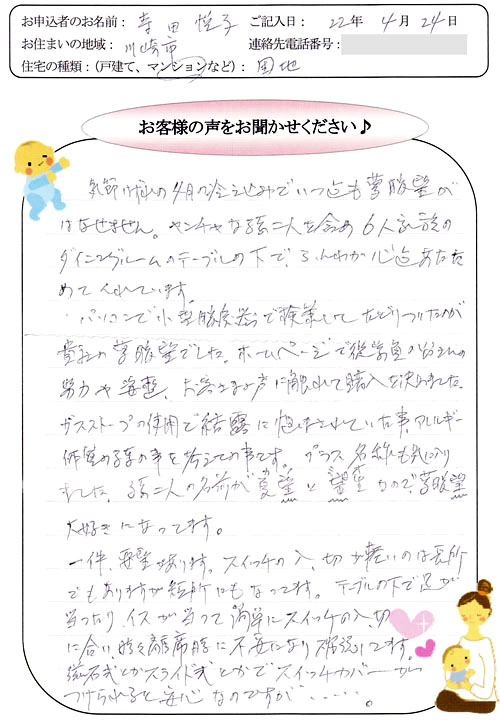 お申込者のお名前： 寺田 悦子 ご記入日： 22年 4月 24日
お住まいの地域： 川崎市 連絡先電話番号：
住宅の種類：（戸建て、マンションなど）： 団地
お客様の声をお聞かせください♪
4月の冷え込みでいつも夢暖望が
はなせません。ヤンチャな孫二人を含め6人家族の
ダイニングルームのテーブルの下で、ふんわか心もあたた
めてくれています。
パソコンで小型暖房器で検索してたどりついたのが
貴社の夢暖望でした。ホームページで従業員の皆さんの
努力や姿勢、お客さまの声に触れて購入を決めました。
ガスストーブの使用で結露に悩まされていた事、アレルギー
体質の孫の事を考えての事です。プラス名称も気に入り
ました。孫二人の名前が夏望と望夏なので、夢暖望
大好きになってます。
一件、要望があります。スイッチの入、切が軽いのは長所
でもありますが短所にもなってます。テーブルの下で足が
当ったり、イスが当って簡単にスイッチの入、切
に合い、時々不安になり
磁石式とかスライド式とかでスイッチカバーが
つけられると安心なのですが……。